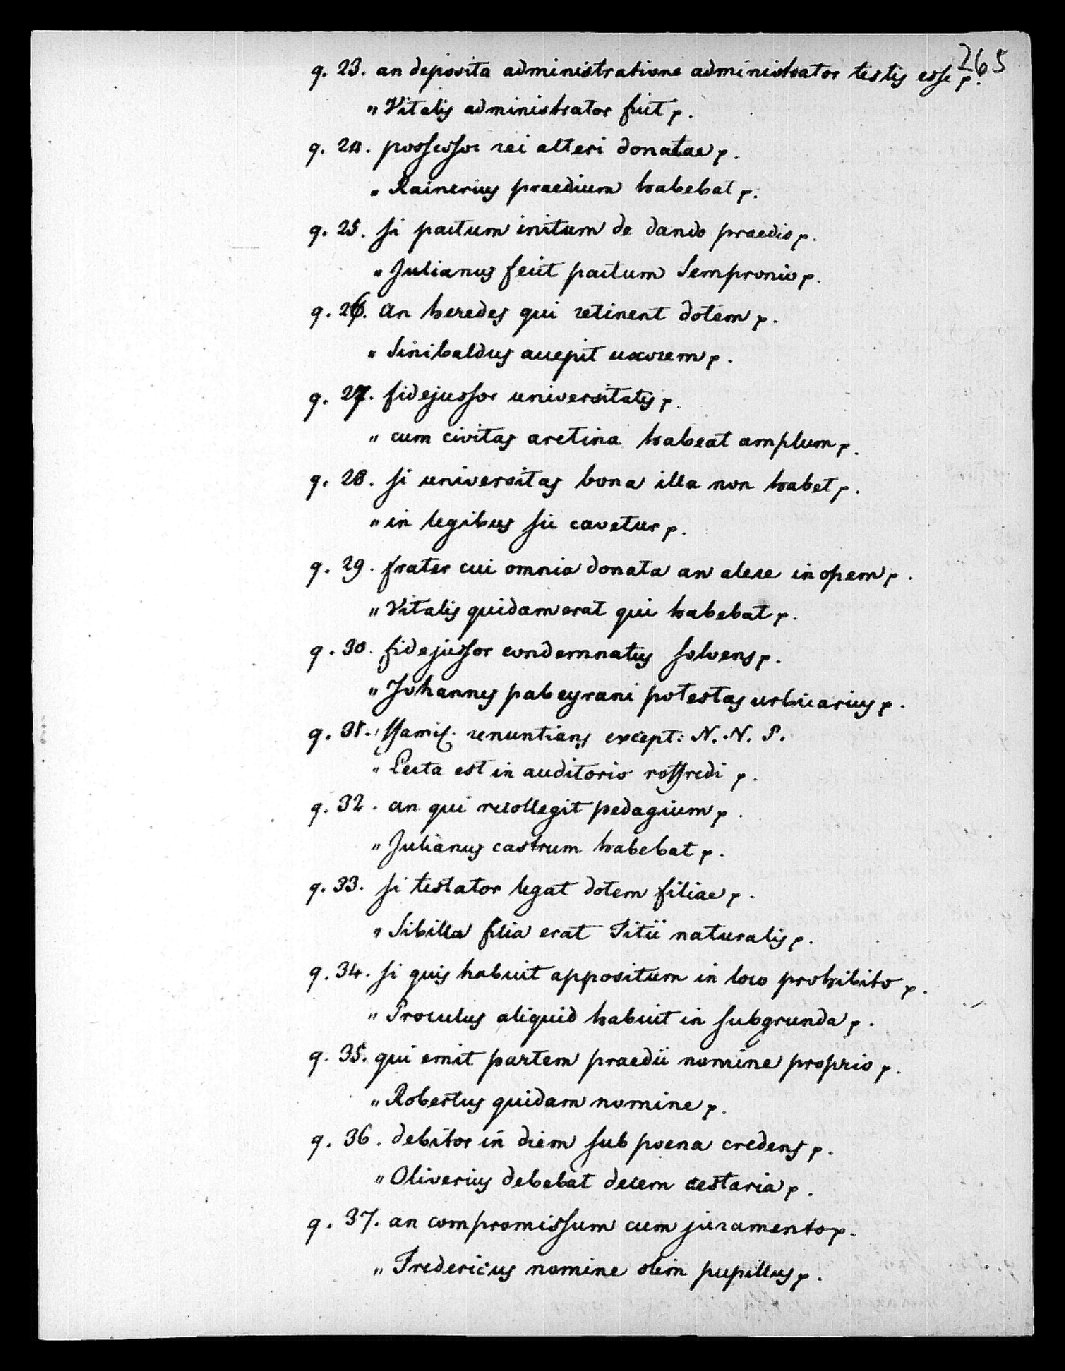 265
q. 23. an deposita administratione administrator testis esse p.
„ Vitalis administrator fuit p.
q. 24. possessor rei alteri donatae p.
„ Rainerius praedium habebat p.
q. 25. si pactum initum de dando praedio p.
„ Julianus fecit pactum Sempronio p.
q. 26. an heredes qui retinent dotem p.
„ Sinibaldus accepit uxorem p.
q. 27. fidejussor universitatis p.
„ cum civitas aretina habeat amplum p.
q. 28. si universitas bona illa non habet p.
„ in legibus sic cavetur p.
q. 29. frater cui omnia donata an alere inopem p.
„ Vitalis quidam erat qui habebat p.
q. 30. fidejussor condemnatus solvens p.
„ Johannes pabeyrani potestas urbicarius p.
q. 31. renuntians except: N. N. P.
„ Lecta est in auditorio roffredi p.
q. 32. an qui recollegit pedagium p.
„ Julianus castrum habebat p.
q. 33. si testator legat dotem filiae p.
„ Sibilla filia erat Titii naturalis p.
q. 34. si quis habuit appositum in loco prohibito p.
„ Proculus aliquid habuit in subgrunda p.
q. 35. qui emit partem praedii nomine proprio p.
„ Robertus quidam nomine p.
q. 36. debitor in diem sub poena credens p.
„ Oliverius debebat decem sestaria p.
q. 37. an compromissum cum juramento p.
„ Fredericus nomine olim pupillus p.